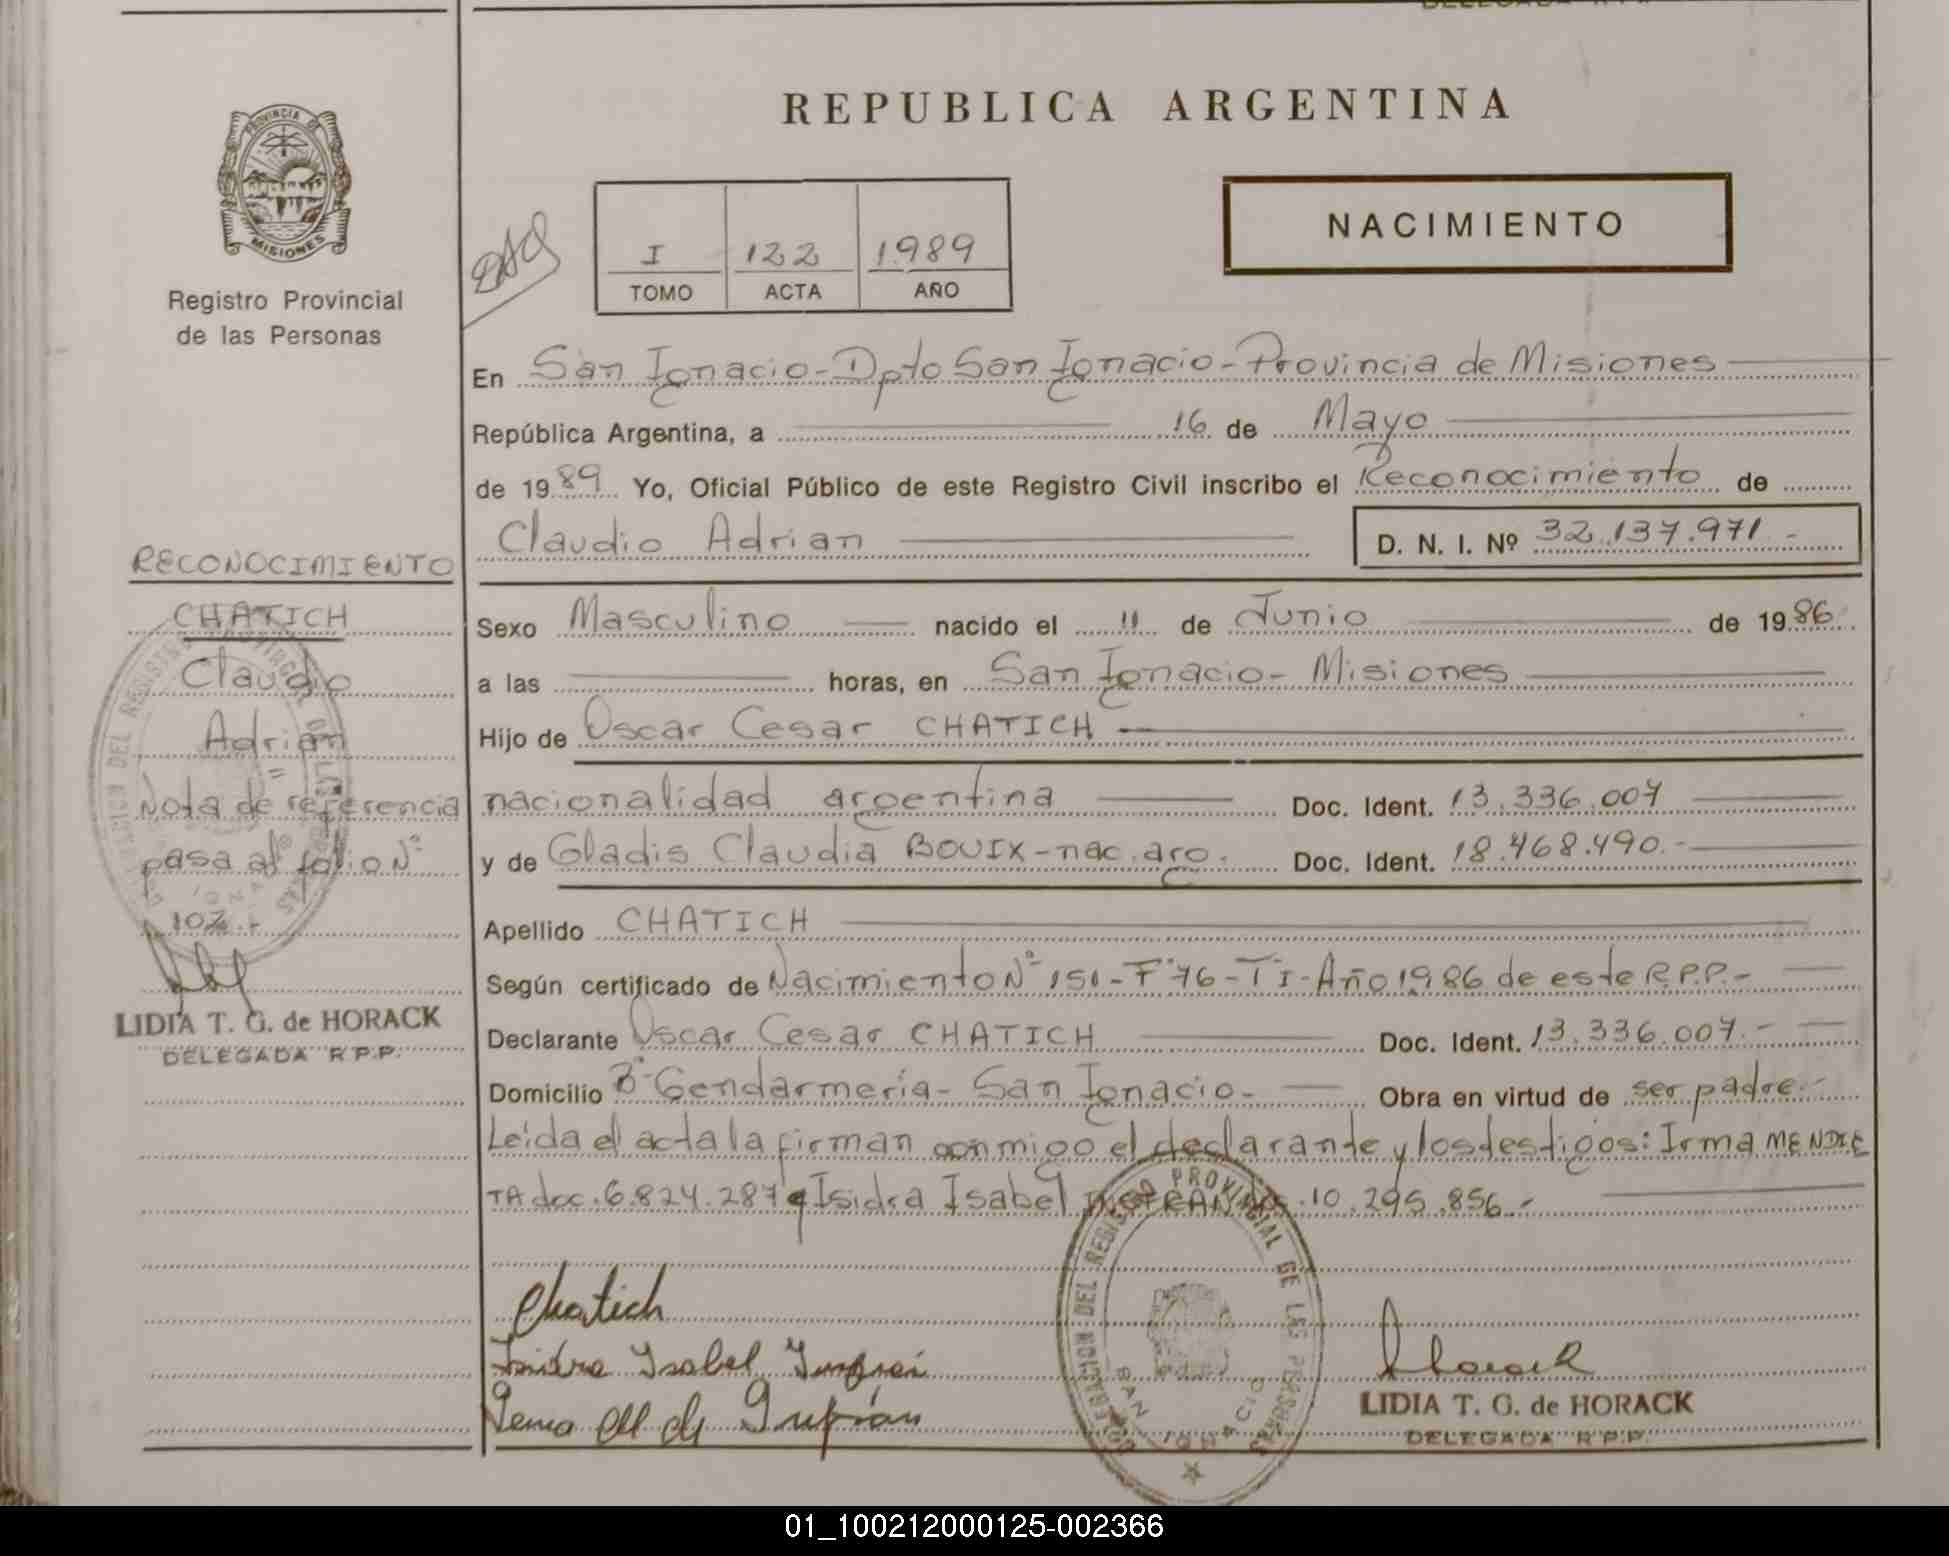 REPUBLICA ARGENTINA
PROVINCIA DE
MISIONES
Registro Provincial
de las Personas
I 122 1989
TOMO ACTA AÑO
NACIMIENTO
En San Ignacio - Dpto San Ignacio - Provincia de Misiones
República Argentina, a 16 de Mayo
de 1989 Yo, Oficial Público de este Registro Civil inscribo el Reconocimiento de
Claudio Adrian D. N. I. Nº 32.137.971.-
RECONOCIMIENTO
CHATICH
Claudio
Adrian
Nota de referencia
pasa al folio Nº
LIDIA T. G. de HORACK
DELEGADA R.P.P.
Sexo Masculino nacido el 11 de Junio de 1986
a las horas, en San Ignacio - Misiones
Hijo de Oscar Cesar CHATICH
nacionalidad argentina Doc. Ident. 13.336.007
y de Gladis Claudia BOUIX - nac. arg. Doc. Ident. 18.468.490.-
Apellido CHATICH
Según certificado de Nacimiento Nº 151 - Fº 76 - T I - Año 1986 de este R.P.P.-
Declarante Oscar Cesar CHATICH Doc. Ident. 13.336.007.-
Domicilio Bº Gendarmería - San Ignacio - Obra en virtud de ser padre.-
Leída el acta la firman conmigo el declarante y los testigos: Irma MENDIE
TA doc. 6.824.287 e Isidra Isabel 10.295.856.-
Chatich
Isidra Isabel
Horack
LIDIA T. G. de HORACK
DELEGADA R.P.P.
DEL REGISTRO PROVINCIAL DE LAS PERSONAS
SAN IGNACIO
01_100212000125-002366